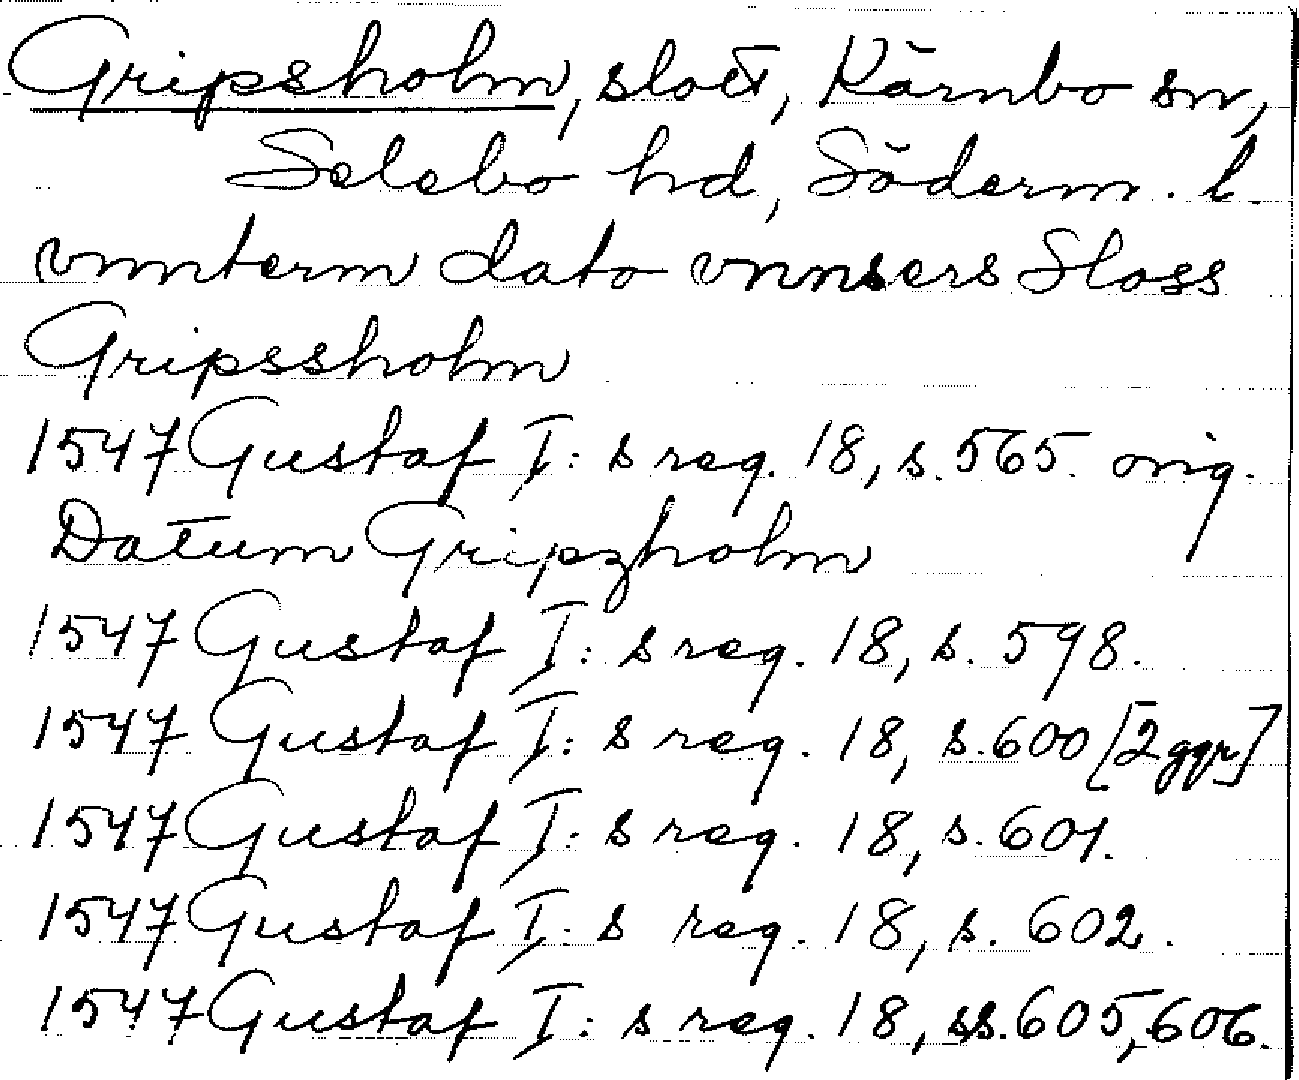 Gripsholm, slott, Kärnbo sn,
Selebo hd, Söderm. l
vnnterm dato vnnsers Sloss
Gripssholm
1547 Gustaf I: s reg. 18, s. 565. orig.
Datum Gripzholm
1547 Gustaf I: s reg. 18, s. 598.
1547 Gustaf I: s reg. 18, s. 600 [2 ggr]
1547 Gustaf I: s reg. 18, s. 601.
1547 Gustaf I: s reg. 18, s. 602.
1547 Gustaf I: s reg. 18, ss. 605, 606.